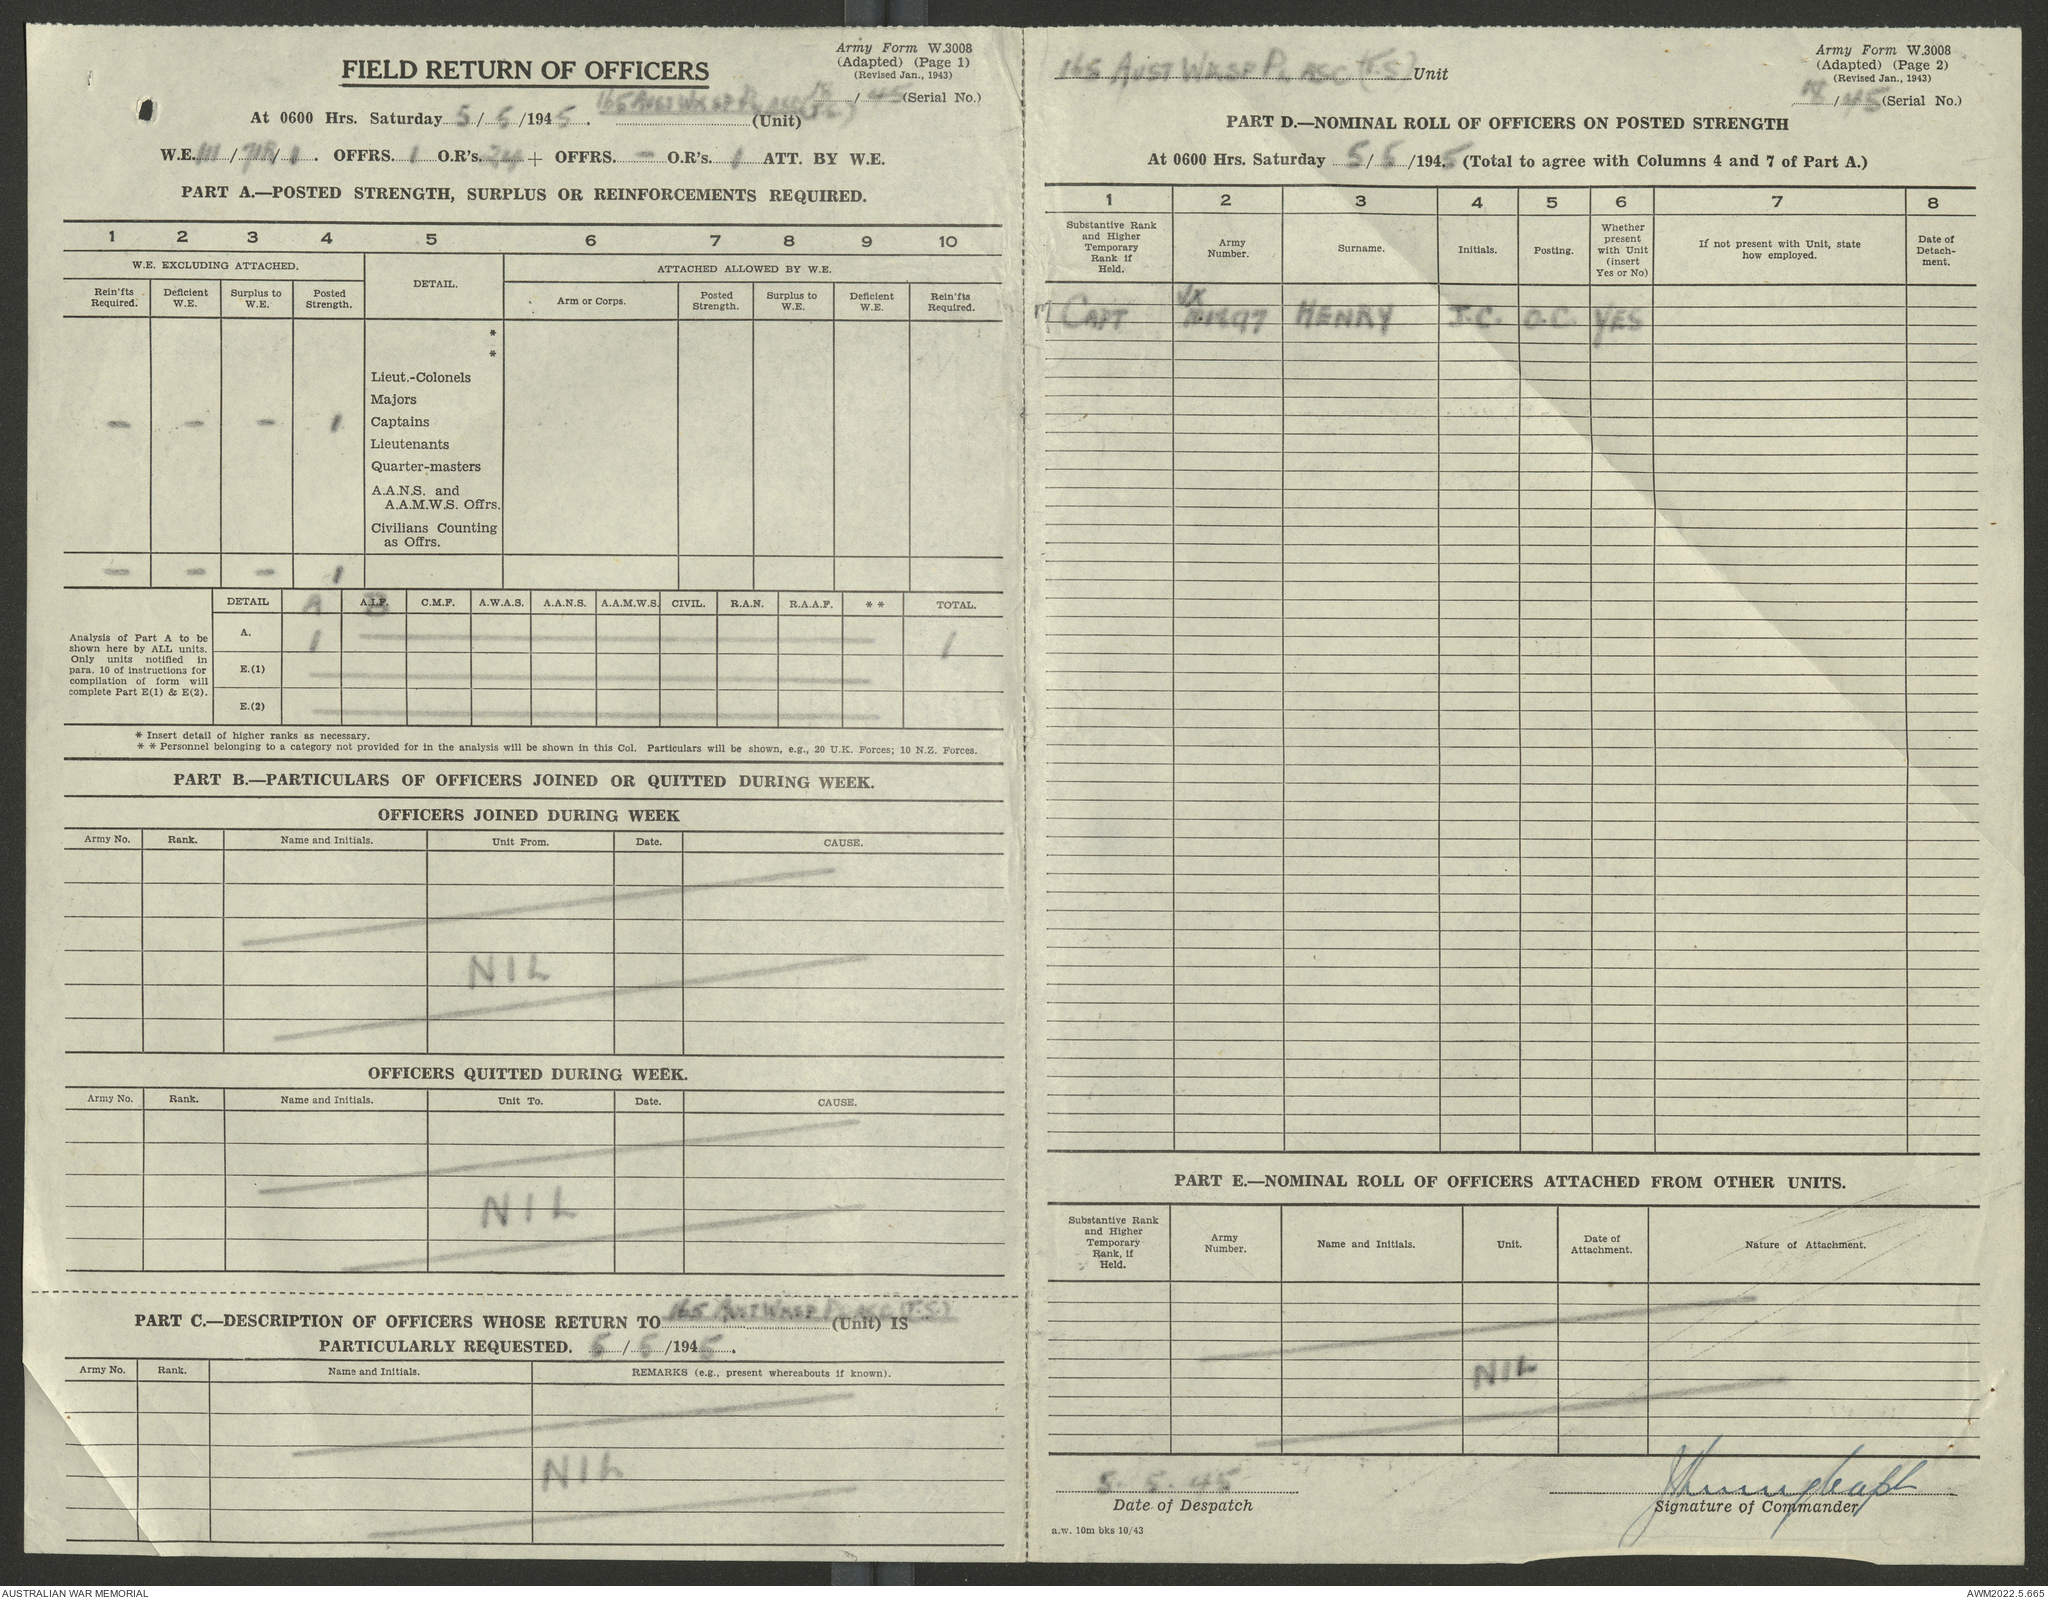 Army Form W.3008
(Adapted) (Page 1)
(Revised Jan., 1943)
FIELD RETURN OF OFFICERS
/45 (Serial No.)
At 0600 Hrs. Saturday 5/5/1945. 165 AUST WKSP PL AASC (T.S.) (Unit)
W.E. III/71B/1. OFFRS. 1 O.R's. 24 + OFFRS. - O.R's. 1 ATT. BY W.E.
PART A.—POSTED STRENGTH, SURPLUS OR REINFORCEMENTS REQUIRED.
1 2 3 4 5 6 7 8 9 10
W.E. EXCLUDING ATTACHED. DETAIL. ATTACHED ALLOWED BY W.E.
Rein'fts Required. Deficient W.E. Surplus to W.E. Posted Strength. Arm or Corps. Posted Strength. Surplus to W.E. Deficient W.E. Rein'fts Required.
*
*
Lieut.-Colonels
Majors
- - - 1 Captains
Lieutenants
Quarter-masters
A.A.N.S. and
A.A.M.W.S. Offrs.
Civilians Counting
as Offrs.
- - - 1
DETAIL A A.I.F. B C.M.F. A.W.A.S. A.A.N.S. A.A.M.W.S. CIVIL. R.A.N. R.A.A.F. * * TOTAL.
Analysis of Part A to be
shown here by ALL units.
Only units notified in
para. 10 of instructions for
compilation of form will
complete Part E(1) & E(2).
A. 1 1
E.(1)
E.(2)
* Insert detail of higher ranks as necessary.
* * Personnel belonging to a category not provided for in the analysis will be shown in this Col. Particulars will be shown, e.g., 20 U.K. Forces; 10 N.Z. Forces.
PART B.—PARTICULARS OF OFFICERS JOINED OR QUITTED DURING WEEK.
OFFICERS JOINED DURING WEEK
Army No. Rank. Name and Initials. Unit From. Date. CAUSE.
NIL
OFFICERS QUITTED DURING WEEK.
Army No. Rank. Name and Initials. Unit To. Date. CAUSE.
NIL
PART C.—DESCRIPTION OF OFFICERS WHOSE RETURN TO 165 AUST WKSP PL AASC (T.S.) (Unit) IS
PARTICULARLY REQUESTED. 5/5/1945.
Army No. Rank. Name and Initials. REMARKS (e.g., present whereabouts if known).
NIL
165 AUST WKSP PL AASC (T.S) Unit
Army Form W.3008
(Adapted) (Page 2)
(Revised Jan., 1943)
/45 (Serial No.)
PART D.—NOMINAL ROLL OF OFFICERS ON POSTED STRENGTH
At 0600 Hrs. Saturday 5/5/1945 (Total to agree with Columns 4 and 7 of Part A.)
1 2 3 4 5 6 7 8
Substantive Rank and Higher Temporary Rank if Held. Army Number. Surname. Initials. Posting. Whether present with Unit (insert Yes or No) If not present with Unit, state how employed. Date of Detachment.
CAPT VX HENRY J.C. O.C. YES
PART E.—NOMINAL ROLL OF OFFICERS ATTACHED FROM OTHER UNITS.
Substantive Rank and Higher Temporary Rank, if Held. Army Number. Name and Initials. Unit. Date of Attachment. Nature of Attachment.
NIL
5. 5. 45
Date of Despatch
Signature of Commander
a.w. 10m bks 10/43
AUSTRALIAN WAR MEMORIAL
AWM2022.5.665